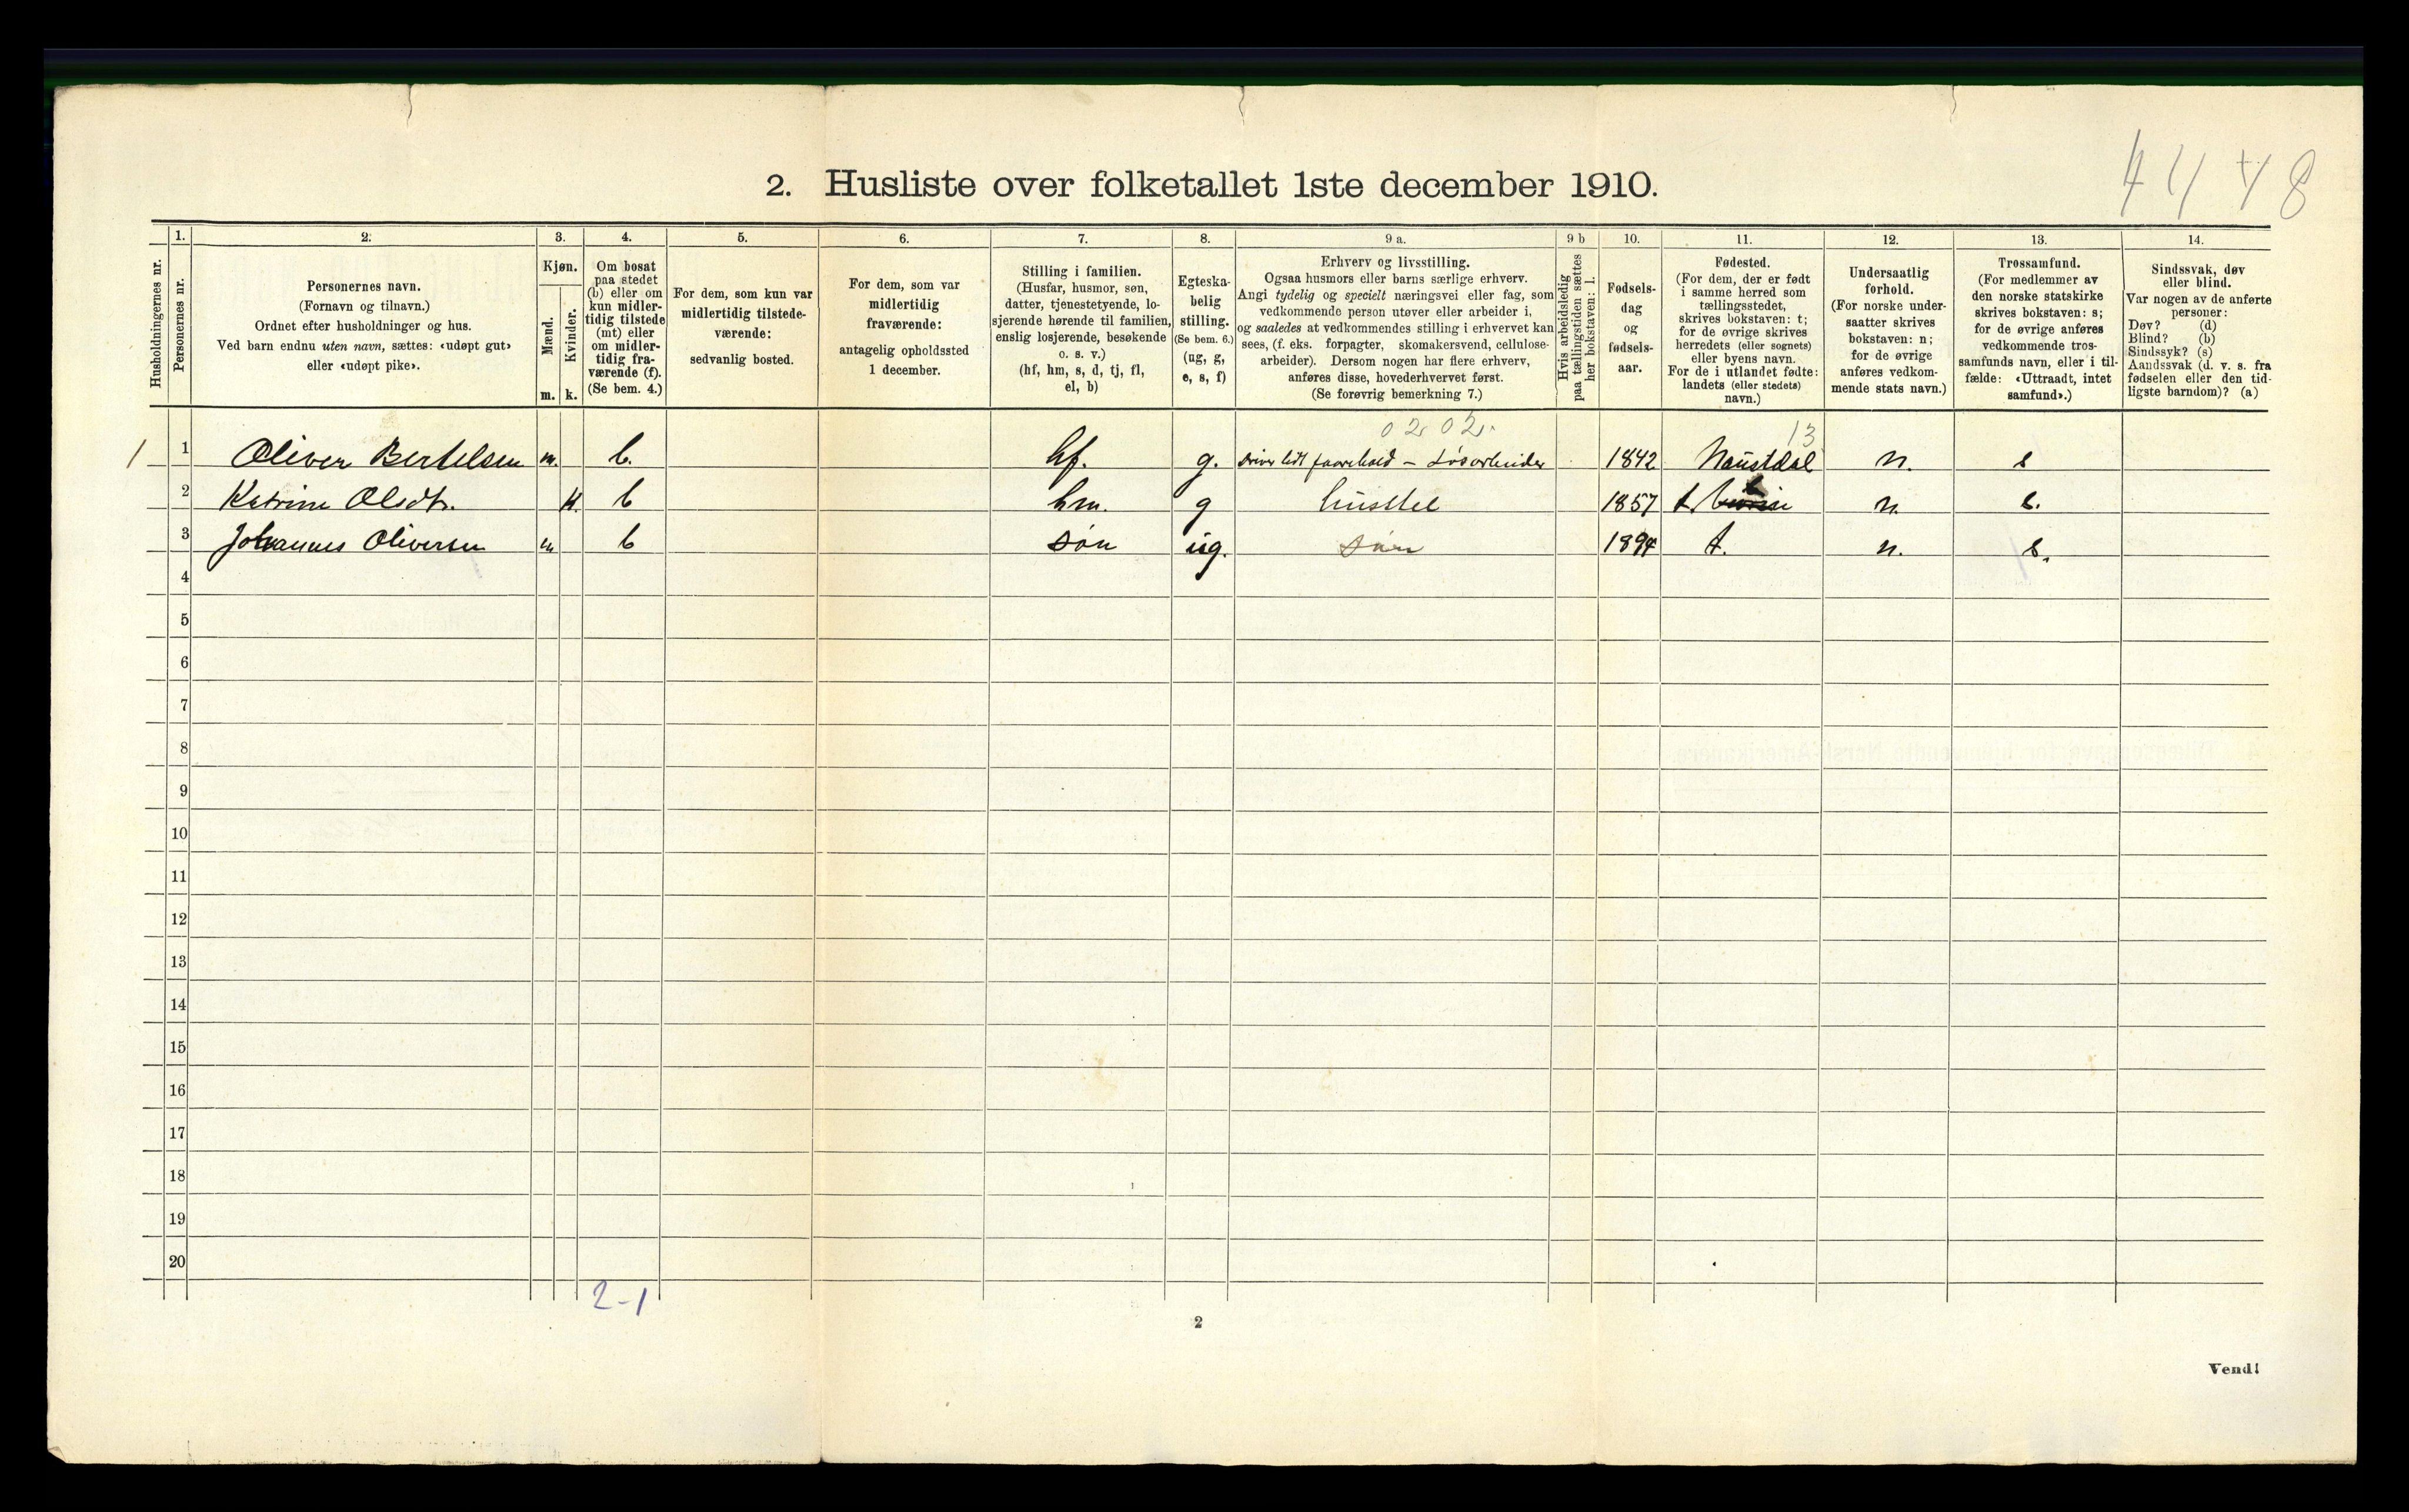 44 48
2. Husliste over folketallet 1ste december 1910.
Husholdningernes nr.
1. Personernes nr.
2. Personernes navn.
(Fornavn og tilnavn.)
Ordnet efter husholdninger og hus.
Ved barn endnu uten navn, sættes: «udøpt gut»
eller «udøpt pike».
3. Kjøn.
Mænd. m.
Kvinder. k.
4. Om bosat
paa stedet
(b) eller om
kun midler-
tidig tilstede
(mt) eller
om midler-
tidig fra-
værende (f).
(Se bem. 4.)
5. For dem, som kun var
midlertidig tilstede-
værende:
sedvanlig bosted.
6. For dem, som var
midlertidig
fraværende:
antagelig opholdssted
1 december.
7. Stilling i familien.
(Husfar, husmor, søn,
datter, tjenestetyende, lo-
sjerende hørende til familien,
enslig losjerende, besøkende
o. s. v.)
(hf, hm, s, d, tj, fl,
el, b)
8. Egteska-
belig
stilling.
(Se bem. 6.)
(ug, g,
e, s, f)
9 a. Erhverv og livsstilling.
Ogsaa husmors eller barns særlige erhverv.
Angi tydelig og specielt næringsvei eller fag, som
vedkommende person utøver eller arbeider i,
og saaledes at vedkommendes stilling i erhvervet kan
sees, (f. eks. forpagter, skomakersvend, cellulose-
arbeider). Dersom nogen har flere erhverv,
anføres disse, hovederhvervet først.
(Se forøvrig bemerkning 7.)
9 b Hvis arbeidsledig
paa tællingstiden sættes
her bokstaven: l.
10. Fødsels-
dag
og
fødsels-
aar.
11. Fødested.
(For dem, der er født
i samme herred som
tællingsstedet,
skrives bokstaven: t;
for de øvrige skrives
herredets (eller sognets)
eller byens navn.
For de i utlandet fødte:
landets (eller stedets)
navn.)
12. Undersaatlig
forhold.
(For norske under-
saatter skrives
bokstaven: n;
for de øvrige
anføres vedkom-
mende stats navn.)
13. Trossamfund.
(For medlemmer av
den norske statskirke
skrives bokstaven: s;
for de øvrige anføres
vedkommende tros-
samfunds navn, eller i til-
fælde: «Uttraadt, intet
samfund».)
14. Sindssvak, døv
eller blind.
Var nogen av de anførte
personer:
Døv? (d)
Blind? (b)
Sindssyk? (s)
Aandssvak (d. v. s. fra
fødselen eller den tid-
ligste barndom)? (a)
0202. 13
1 1 Oliver Bertelsen m. b. hf. g. driver lidt faarehold – Løsarbeider 1842 Naustdal n. s
2 Katrine Olsdtr. k. b hm. g husstel 1857 t. n. s.
3 Johannes Oliversen m b søn ug. søn 1894 t. n. s.
4
5
6
7
8
9
10
11
12
13
14
15
16
17
18
19
20
2-1
2
Vend!